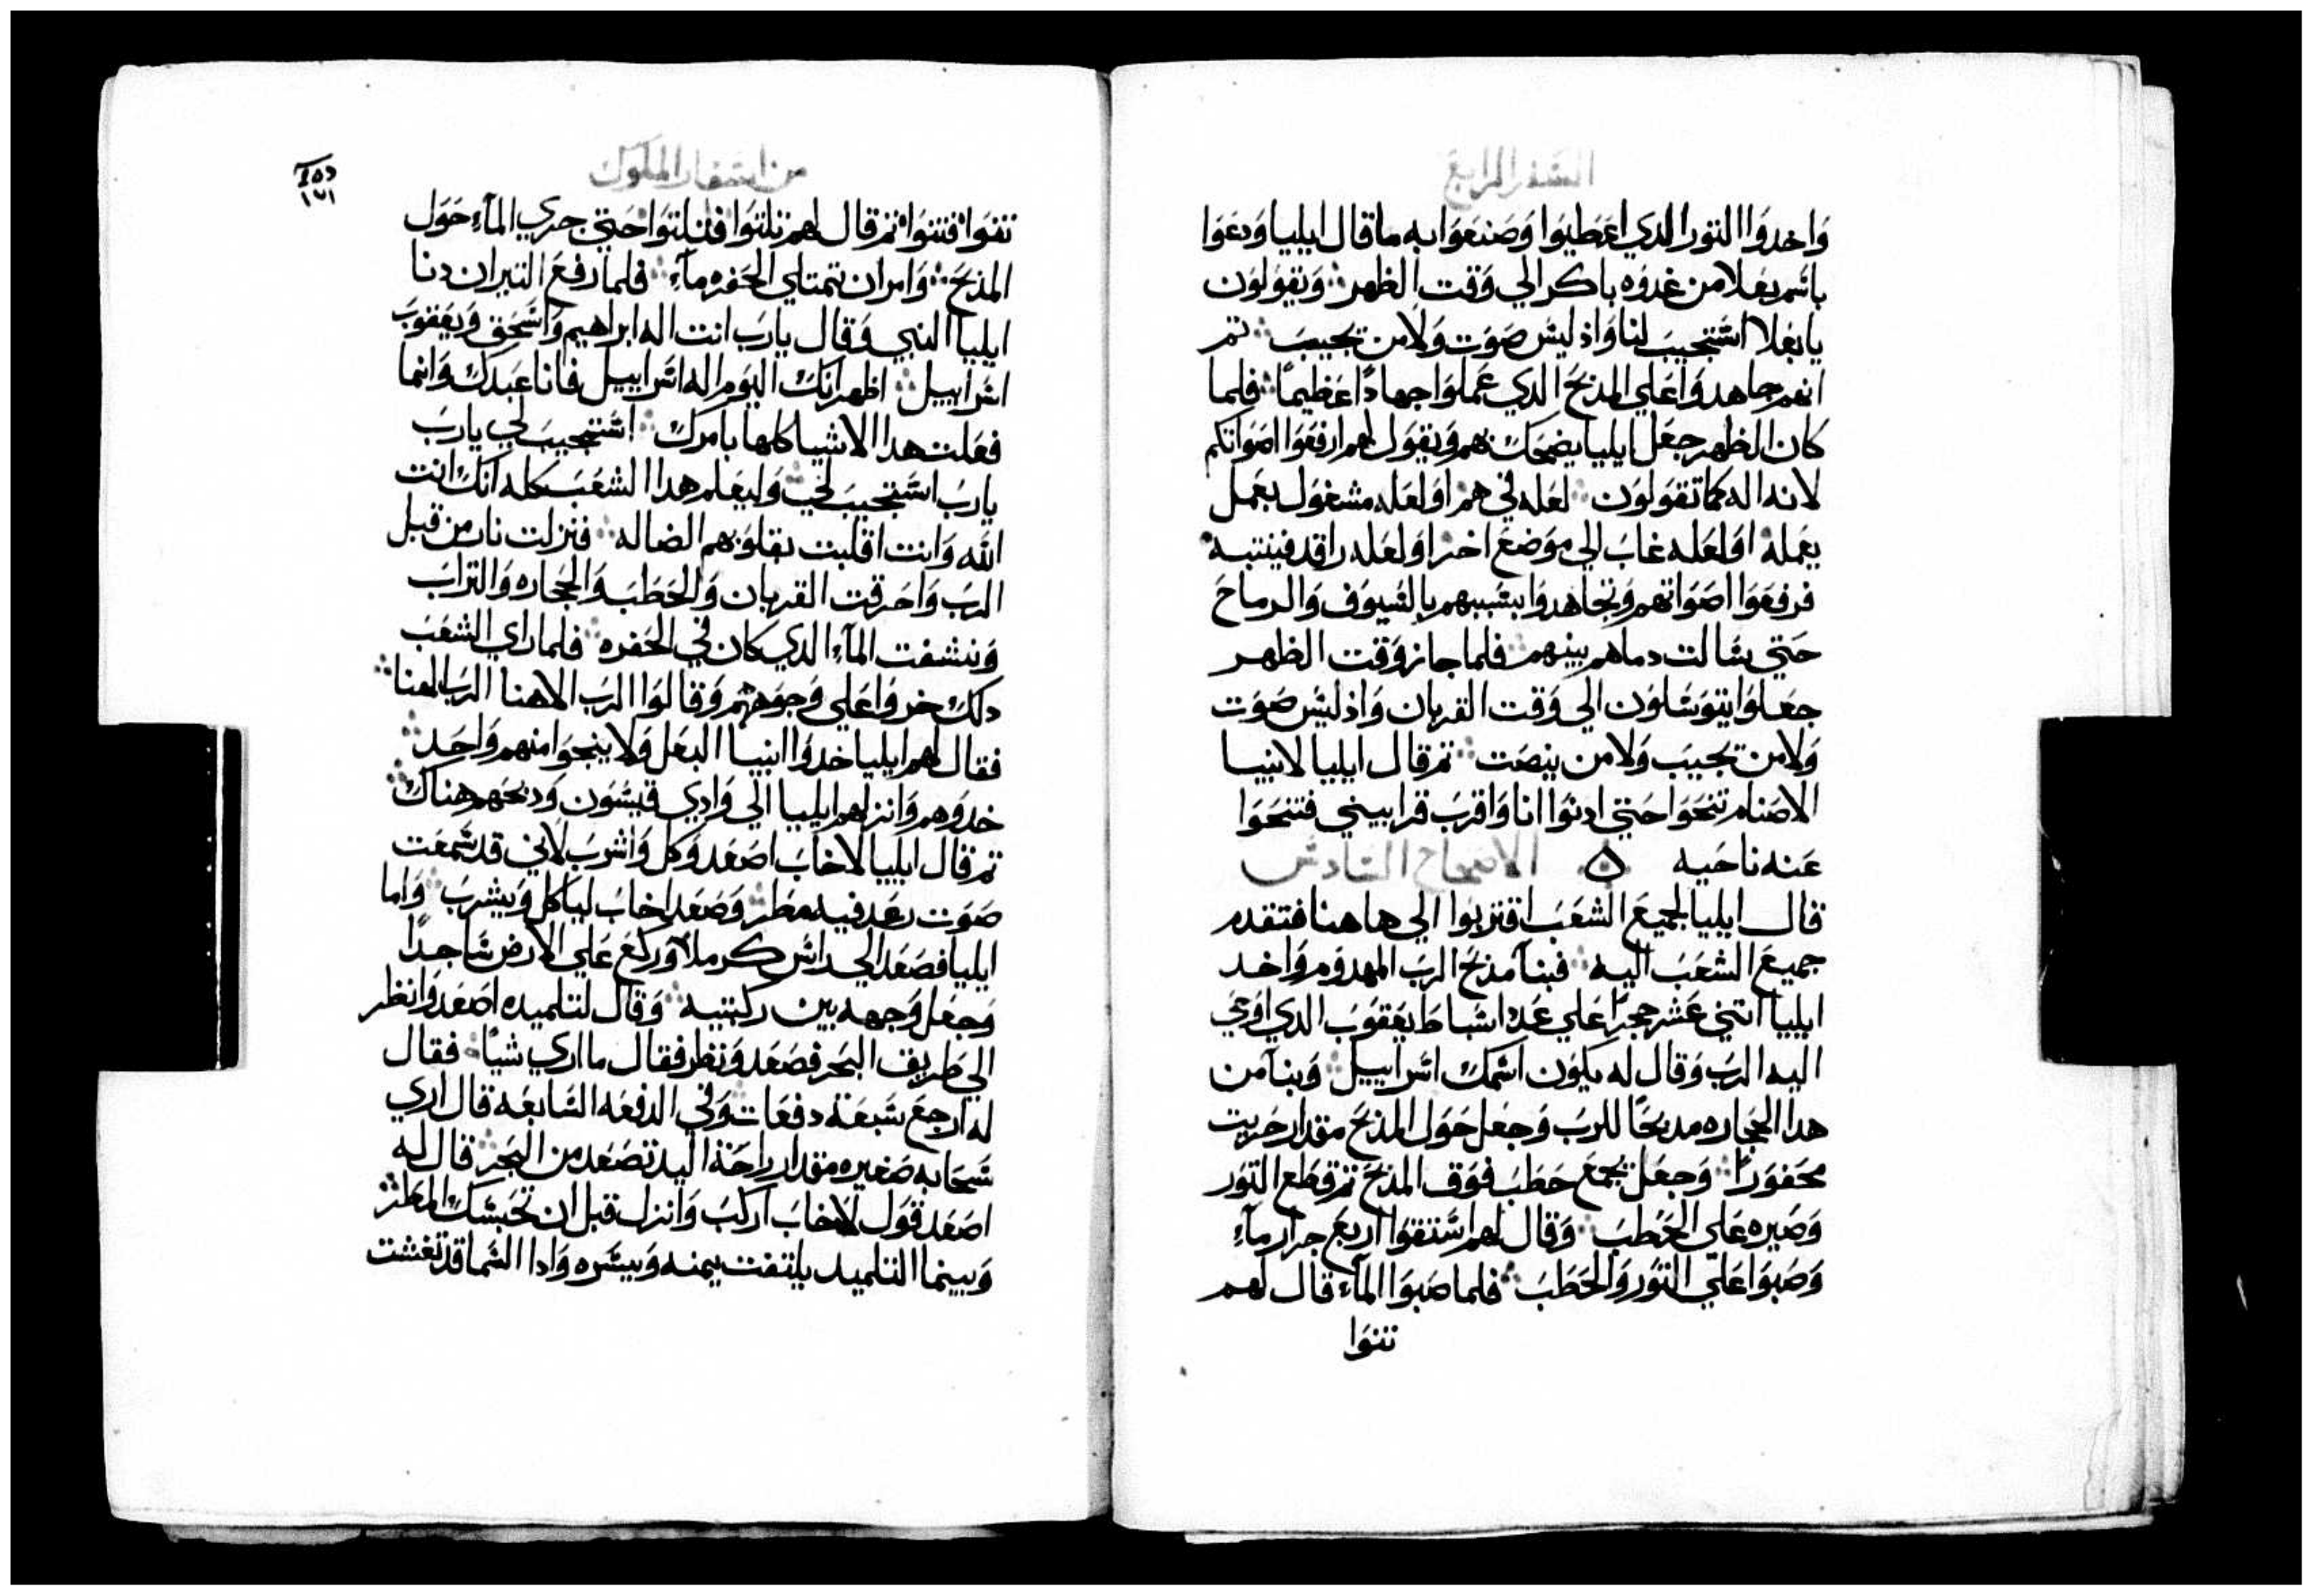 السفر الرابع
واخدوا التور الدي اعطيوا وصنعوا به ما قال ايليا ودعوا
باسم بعلا من غدوه باكر الي وقت الظهر ويقولون
يا بعلا استجيب لنا واذ ليس صوت ولا من يجيب تم
انهم جاهدوا علي المذبح الدي عملوا جهادًا عظيمًا فلما
كان الظهر جعل ايليا يضحك بهم ويقول لهم ارفعوا اصواتكم
لانه اله كما تقولون لعله في هم او لعله مشغول بعمل
يعمله او لعله غاب الي موضع اخر او لعله راقد فينتبه
فرفعوا اصواتهم وتجاهدوا بسببهم بالسيوف والرماح
حتي سالت دماهم بينهم فلما جاز وقت الظهر
جعلوا يتوسلون الي وقت القربان واذ ليس صوت
ولا من يجيب ولا من ينصت تم قال ايليا لانبيا
الاصنام تنحوا حتي ادنوا انا واقرب قرابيني فتنحوا
عنه ناحيه ه الاصحاح السادس
قال ايليا لجميع الشعب اقتربوا الي هاهنا فتقدم
جميع الشعب اليه فبنا مذبح الرب المهدوم واخد
ايليا اتني عشر حجرًا علي عدد اسباط يعقوب الدي اوحي
اليه الرب وقال له يكون اسمك اسراييل وبنا من
هدا الحجاره مدبحًا للرب وجعل حول المذبح مقدار حربيت
محفورًا وجعل يجمع حطب فوق المذبح تم قطع التور
وصيره علي الحطب وقال لهم استقوا اربع جرار مآء
وصبوا علي التور والحطب فلما صبوا المآء قال لهم
تنوا
من اسفار الملوك
١٧١
تنوا فتنوا تم قال لهم تلتوا فتلتوا حتي جري المآء حول
المذبح وامر ان تمتلي الحفره مآء فلما رفع النيران دنا
ايليا النبي وقال يا رب انت اله ابراهيم واسحق ويعقوب
اسراييل اظهر انك اليوم اله اسراييل فانا عبدك وانما
فعلت هدا الاشيا كلها بامرك استجيب لي يا رب
يا رب استجيب لي وليعلم هدا الشعب كله انك انت
الله وانت اقلبت بقلوبهم الضاله فنزلت نار من قبل
الرب واحرقت القربان والحطب والحجاره والتراب
ونشفت المآء الدي كان في الحفره فلما راي الشعب
دلك خروا علي وجوههم وقالوا الرب الاهنا الرب الهنا
فقال لهم ايليا خدوا انبيا البعل ولا ينجوا منهم واحد
خدوهم وانزلهم ايليا الي وادي قيسون ودبحهم هناك
تم قال ايليا لاخاب اصعد وكل واشرب لاني قد سمعت
صوت رعد فيه مطر وصعد اخاب لياكل ويشرب واما
ايليا فصعد الي راس كرملا وركع علي الارض ساجدًا
وجعل وجهه بين ركبتيه وقال لتلميده اصعد وانظر
الي طريف البحر فصعد ونظر فقال ما اري شيًا فقال
له ارجع سبعة دفعات وفي الدفعه السابعه قال اري
سحابه صغيره مقدار راحة اليد تصعد من البحر قال له
اصعد قول لاخاب اركب وانزل قبل ان تحبسك المطر
وبينما التلميد يلتفت يمنه ويسره وادا السما قد تغشت